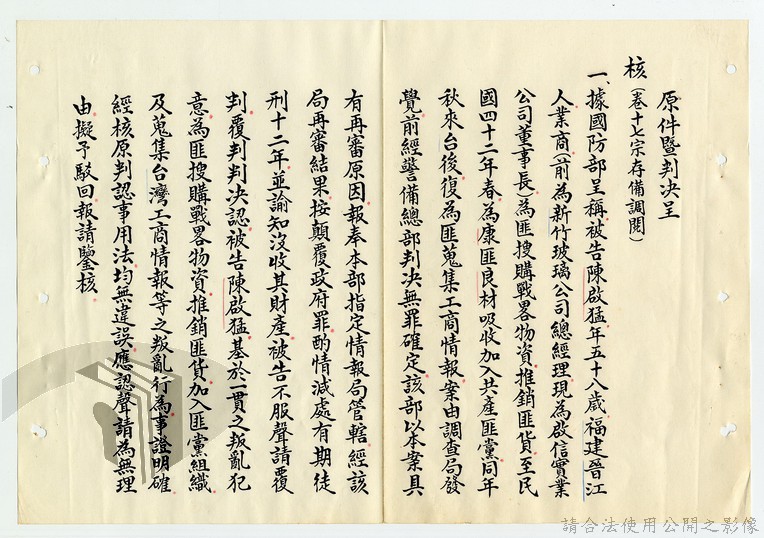 原件暨判決呈
核(卷十七宗存備調閱)
一、據國防部呈稱被告陳啟猛年五十八歲福建晉江
人業商(前為新竹玻璃公司總經理現為啟信實業
公司董事長)為匪搜購戰畧物資推銷匪貨至民
國四十二年春為康匪良材吸收加入共產匪黨同年
秋來台後復為匪蒐集工商情報案由調查局發
覺前經警備總部判決無罪確定該部以本案具
有再審原因報奉本部指定情報局管轄經該
局再審結果按顛覆政府罪酌情減處有期徒
刑十二年並諭知沒收其財產被告不服聲請覆
判覆判判決認被告陳啟猛基於一貫之叛亂犯
意為匪搜購戰畧物資推銷匪貨加入匪黨組織
及蒐集台灣工商情報等之叛亂行為事證明確
經核原判認事用法均無違誤應認聲請為無理
由擬予駁回報請鑒核
請合法使用公開之影像